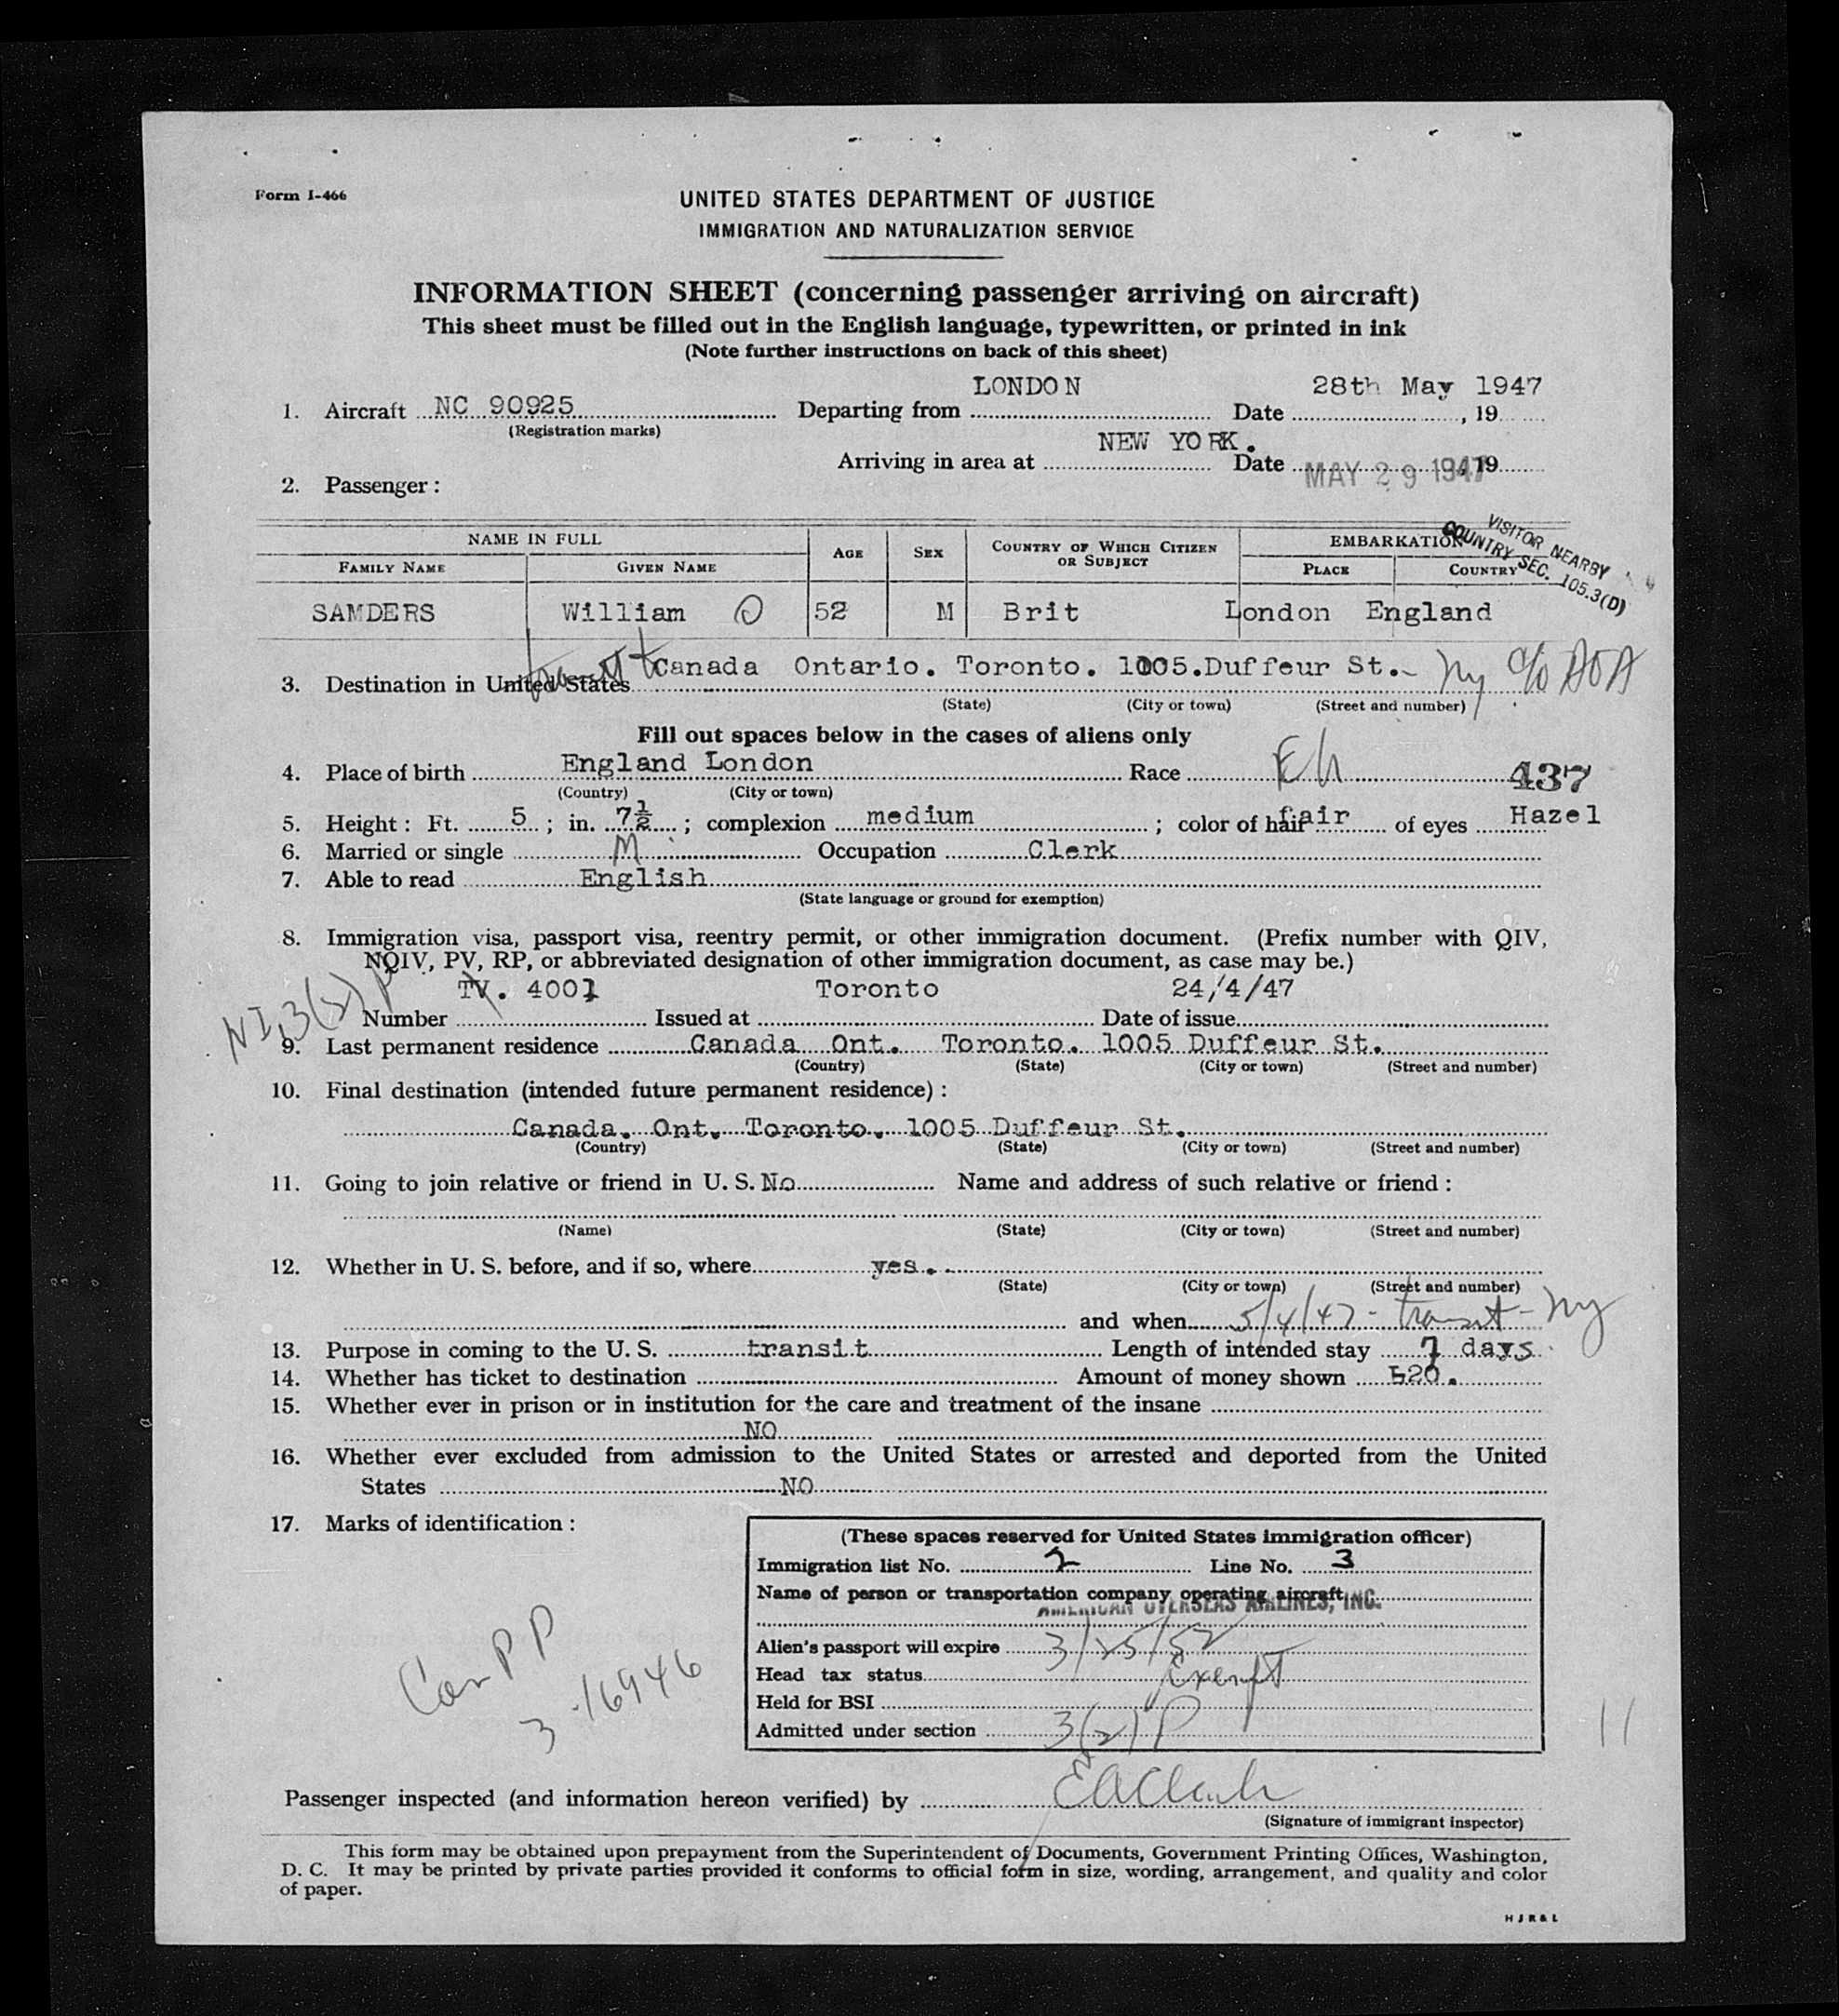 Form I-466
UNITED STATES DEPARTMENT OF JUSTICE
IMMIGRATION AND NATURALIZATION SERVICE
INFORMATION SHEET (concerning passenger arriving on aircraft)
This sheet must be filled out in the English language, typewritten, or printed in ink
(Note further instructions on back of this sheet)
1. Aircraft NC 90925 Departing from LONDON Date 28th May 1947, 19
(Registration marks)
Arriving in area at NEW YORK. Date MAY 29 1947, 19
2. Passenger:
VISITOR NEARBY
COUNTRY SEC. 105.3(D)
NAME IN FULL AGE SEX COUNTRY OF WHICH CITIZEN OR SUBJECT EMBARKATION
FAMILY NAME GIVEN NAME PLACE COUNTRY
SAMDERS William O 52 M Brit London England
3. Destination in United States transit Canada Ontario. Toronto. 1005.Duffeur St.- Ny c/o AOA
(State) (City or town) (Street and number)
Fill out spaces below in the cases of aliens only
4. Place of birth England London Race Eh 437
(Country) (City or town)
5. Height: Ft. 5; in. 7½; complexion medium; color of hair fair of eyes Hazel
6. Married or single M Occupation Clerk
7. Able to read English
(State language or ground for exemption)
8. Immigration visa, passport visa, reentry permit, or other immigration document. (Prefix number with QIV,
NQIV, PV, RP, or abbreviated designation of other immigration document, as case may be.)
NI,3(2)P
Number TV. 4001 Issued at Toronto Date of issue 24/4/47
9. Last permanent residence Canada Ont. Toronto. 1005 Duffeur St.
(Country) (State) (City or town) (Street and number)
10. Final destination (intended future permanent residence):
Canada. Ont. Toronto. 1005 Duffeur St.
(Country) (State) (City or town) (Street and number)
11. Going to join relative or friend in U. S. No Name and address of such relative or friend:
(Name) (State) (City or town) (Street and number)
12. Whether in U. S. before, and if so, where yes.
(State) (City or town) (Street and number)
and when 5/4/47 - transit - Ny
13. Purpose in coming to the U. S. transit Length of intended stay 7 days
14. Whether has ticket to destination Amount of money shown £20.
15. Whether ever in prison or in institution for the care and treatment of the insane
NO
16. Whether ever excluded from admission to the United States or arrested and deported from the United
States NO
17. Marks of identification:
(These spaces reserved for United States immigration officer)
Immigration list No. 2 Line No. 3
Name of person or transportation company operating aircraft
AMERICAN OVERSEAS AIRLINES, INC.
Alien's passport will expire 3/25/52
Head tax status Exempt
Held for BSI
Admitted under section 3(2) P
Can PP
3-16946
11
Passenger inspected (and information hereon verified) by EAClark
(Signature of immigrant inspector)
This form may be obtained upon prepayment from the Superintendent of Documents, Government Printing Offices, Washington,
D. C. It may be printed by private parties provided it conforms to official form in size, wording, arrangement, and quality and color
of paper.
H J R & L